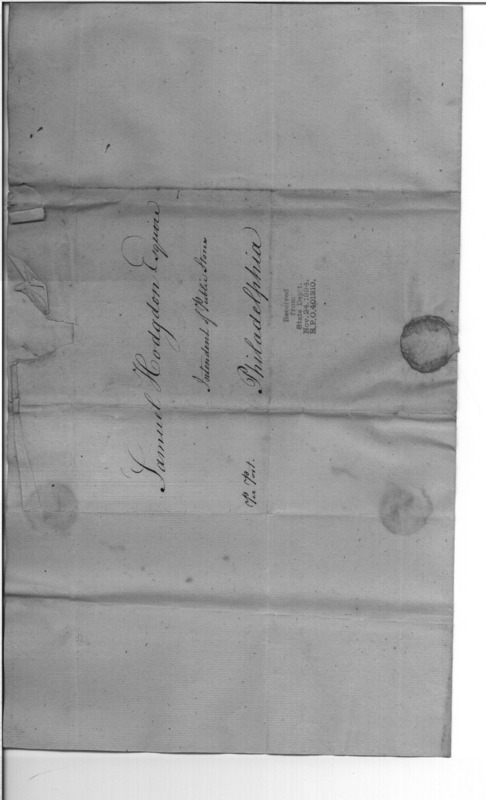 Samuel Hodgdon Esquire
Intendent of Public Stores
Philadelphia
Pr Post.
Received
from
State Dept.
Nov. 24, 1894.
R.P.O. 401210.